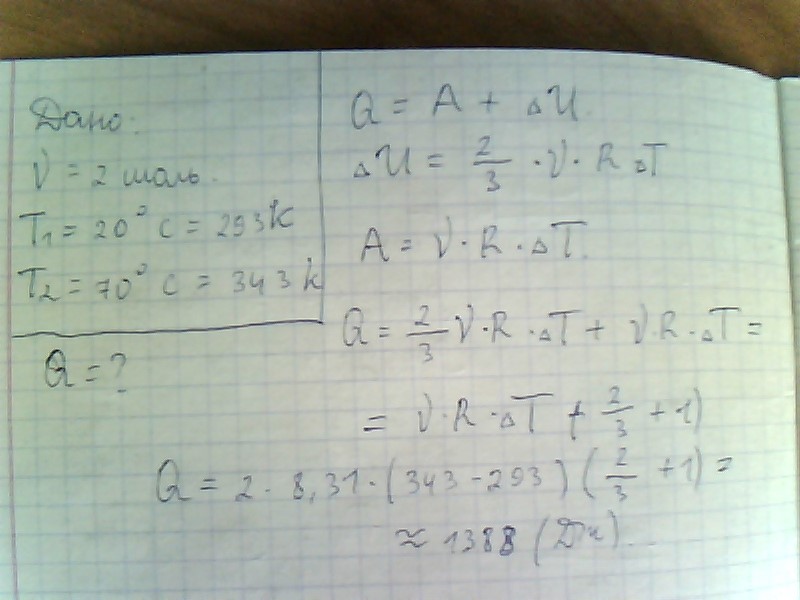 Дано:
ν = 2 моль.
T₁ = 20° C = 293 K
T₂ = 70° C = 343 K
Q = ?
Q = A + ΔU.
ΔU = 2/3 · ν · R ΔT
A = ν · R · ΔT.
Q = 2/3 ν · R · ΔT + ν · R · ΔT =
= ν · R · ΔT ( 2/3 + 1)
Q = 2 · 8,31 · (343 - 293) ( 2/3 + 1) =
≈ 1388 (Дж)...